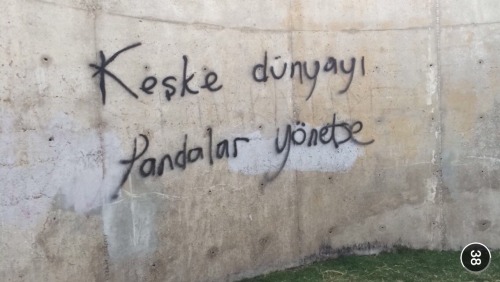 Keşke dünyayı
Pandalar yönetse
38